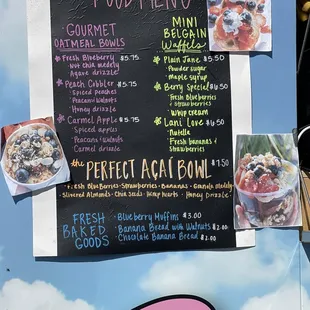 FOOD MENU
GOURMET
OATMEAL BOWLS
Fresh Blueberry $5.75
Nut chia medely
Agave drizzle
Peach Cobbler $5.75
Spiced peaches
Pecans/Walnuts
Honey drizzle
Carmel Apple $5.75
Spiced apples
Pecans/Walnuts
Carmel drizzle
MINI
BELGAIN
Waffels
Plain Jane $5.50
Powder sugar
maple syrup
Berry Special $6.50
Fresh Blueberries
Strawberries
Whip cream
Lani Love $6.50
Nutella
Fresh bananas &
Strawberries
the PERFECT AÇAÍ BOWL $7.50
Fresh Blueberries • Strawberries • Bananas • Granola Medley
Slivered Almonds • Chia Seeds • Hemp hearts • Honey Drizzle
FRESH
BAKED
GOODS
Blueberry Muffins $3.00
Banana Bread with Walnuts $2.00
Chocolate Banana Bread $2.00